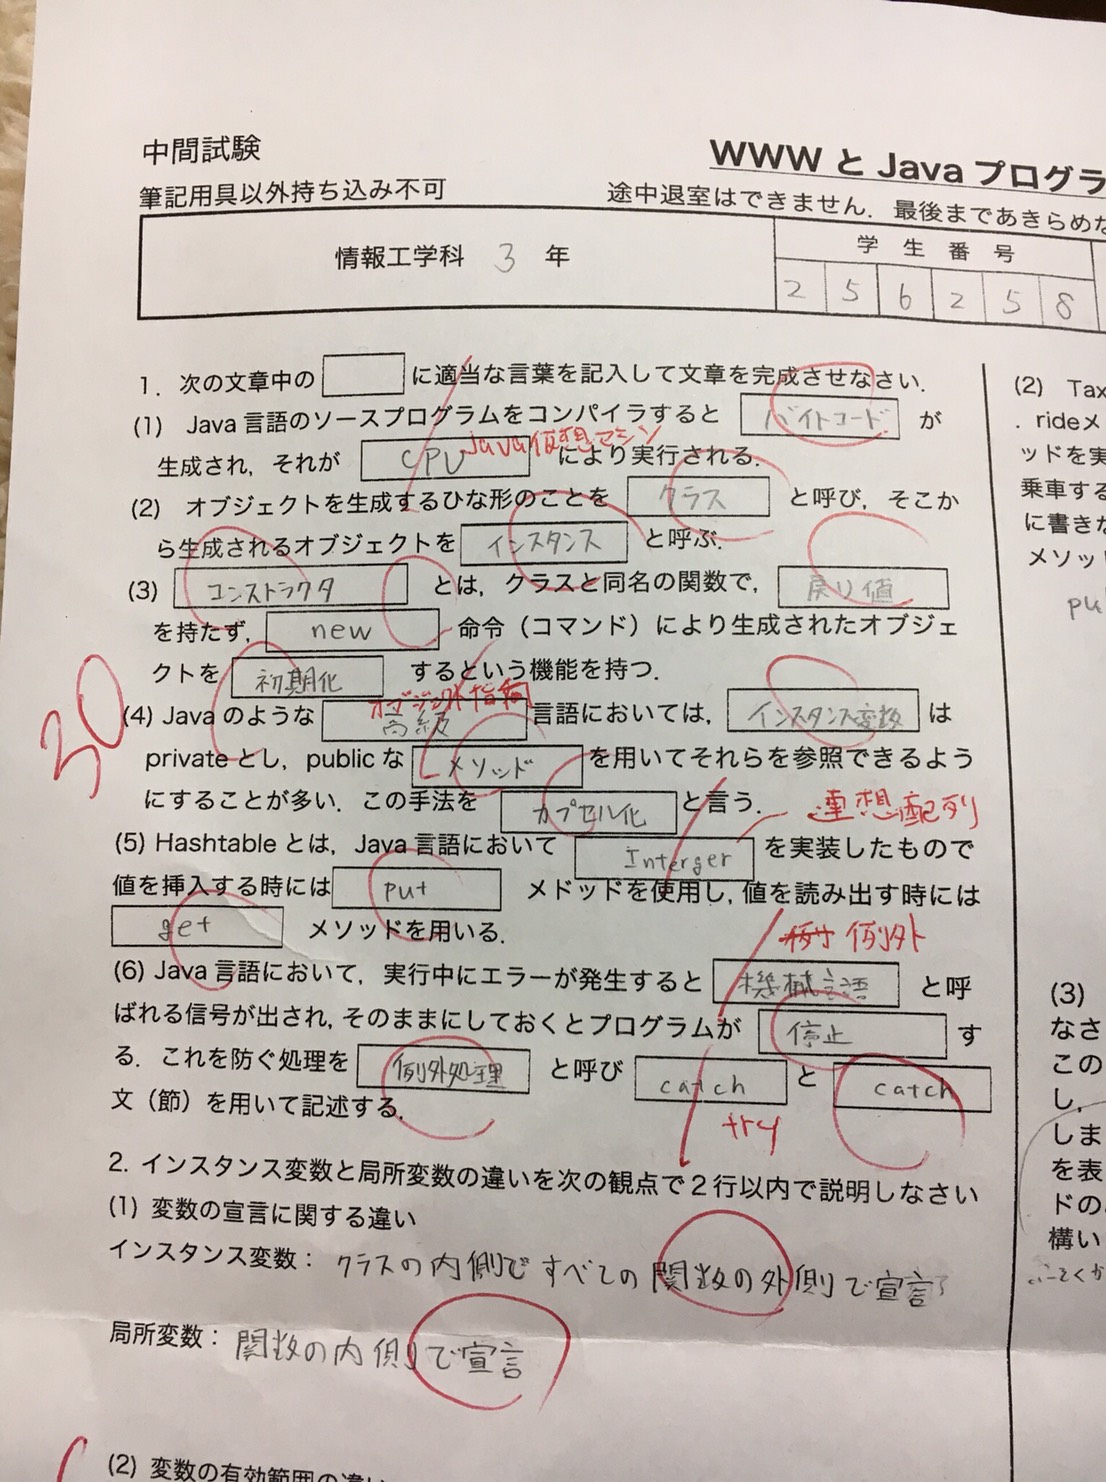 中間試験
WWW と Java プログラ
筆記用具以外持ち込み不可
途中退室はできません．最後まであきらめな
情報工学科 3 年
学生番号
2 5 6 2 5 8
1．次の文章中の に適当な言葉を記入して文章を完成させなさい．
(1) Java 言語のソースプログラムをコンパイラすると バイトコード が
生成され，それが CPU Java仮想マシン により実行される．
(2) オブジェクトを生成するひな形のことを クラス と呼び，そこか
ら生成されるオブジェクトを インスタンス と呼ぶ．
(3) コンストラクタ とは，クラスと同名の関数で， 戻り値
を持たず， new 命令（コマンド）により生成されたオブジェ
クトを 初期化 するという機能を持つ．
30
オブジェクト指向
(4) Java のような 高級 言語においては， インスタンス変数 は
private とし，public な メソッド を用いてそれらを参照できるよう
にすることが多い．この手法を カプセル化 と言う．
連想配列
(5) Hashtable とは，Java 言語において Interger を実装したもので
値を挿入する時には put メドッドを使用し，値を読み出す時には
get メソッドを用いる．
例外
(6) Java 言語において，実行中にエラーが発生すると 機械言語 と呼
ばれる信号が出され，そのままにしておくとプログラムが 停止 す
る．これを防ぐ処理を 例外処理 と呼び catch と catch
文（節）を用いて記述する．
try
2. インスタンス変数と局所変数の違いを次の観点で２行以内で説明しなさい
(1) 変数の宣言に関する違い
インスタンス変数： クラスの内側ですべての関数の外側で宣言
局所変数： 関数の内側で宣言
(2) 変数の有効範囲の違い
(2) Tax
．rideメ
ッドを実
乗車する
に書きな
メソッ
pu
(3)
なさ
この
し，
しま
を表
ドの
構い